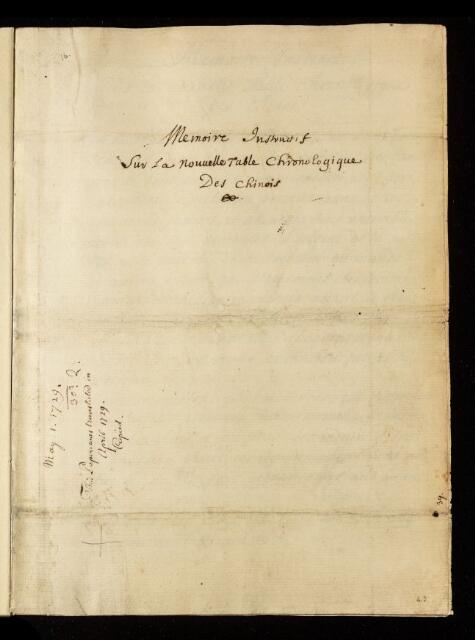 Memoire Instructif
Sur La Nouvelle Table Chronologique
Des Chinois
May 1. 1729.
2.
This Paper was translated in
April 1729.
Copied.
39.